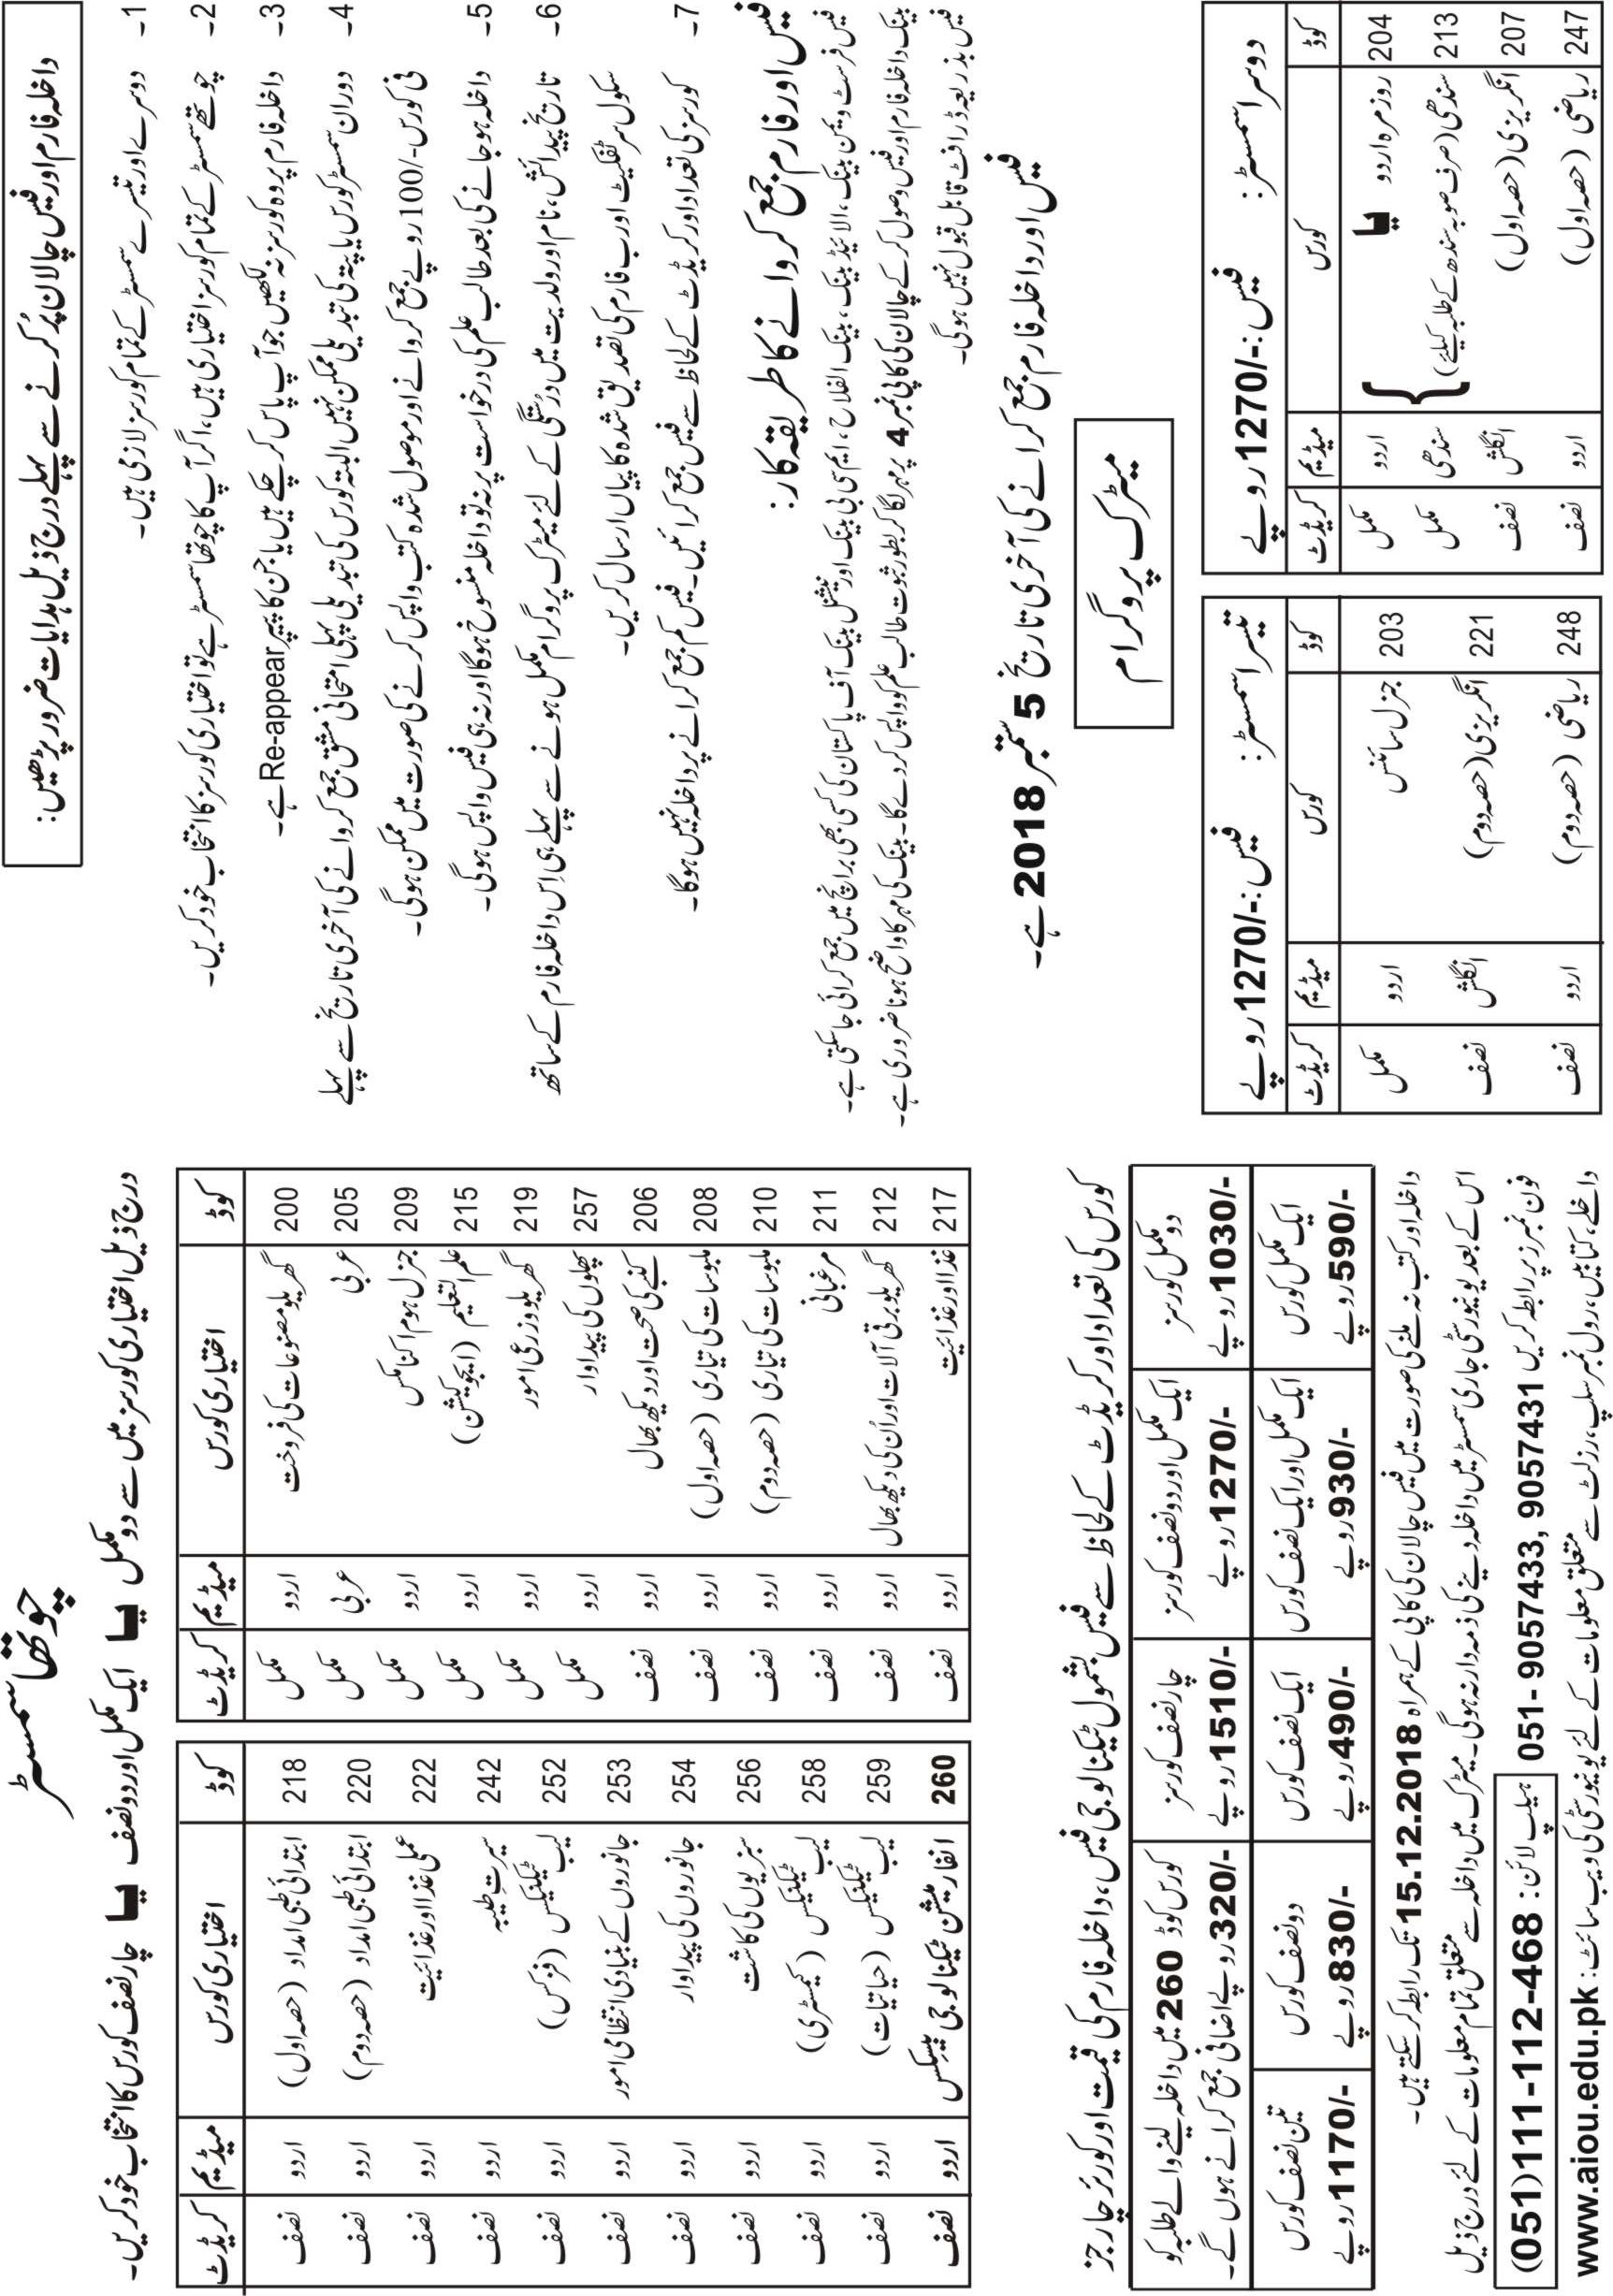 داخلہ فارم اور فیس چالان پُر کرنے سے پہلے درج ذیل ہدایات ضرور پڑھیں:
1۔ دوسرے اور تیسرے سمسٹر کے تمام کورسز لازمی ہیں۔
2۔ چوتھے سمسٹر کے تمام کورسز اختیاری ہیں، اگر آپ کا چوتھا سمسٹر ہے تو اختیاری کورسز کا انتخاب خود کریں۔
3۔ داخلہ فارم پر وہ کورسز نہ لکھیں جو آپ پاس کر چکے ہیں یا جن کا پیپر Re-appear ہے۔
4۔ دوران سمسٹر کورس یا پتہ کی تبدیلی ممکن نہیں البتہ کورس کی تبدیلی پہلی امتحانی مشق جمع کروانے کی آخری تاریخ سے پہلے
فی کورس -/100 روپے جمع کروانے اور موصول شدہ کتب واپس کرنے کی صورت میں ممکن ہوگی۔
5۔ داخلہ ہو جانے کی بعد طالب علم کی درخواست پر نہ تو داخلہ منسوخ ہوگا اور نہ ہی فیس واپس ہوگی۔
6۔ تاریخ پیدائش، نام اور ولدیت میں درستگی کے لئے میٹرک پروگرام مکمل ہونے سے پہلے ہی اِس داخلہ فارم کے ساتھ
سکول سرٹفکیٹ اور ب فارم کی تصدیق شدہ کاپیاں ارسال کریں۔
7۔ کورسز کی تعداد اور کریڈٹ کے لحاظ سے فیس جمع کرائیں۔ فیس کم جمع کرانے پر داخلہ نہیں ہوگا۔
فیس اور فارم جمع کروانے کا طریقہ کار:
فیس فرسٹ ویمن بینک، الائیڈ بینک، بینک الفلاح، ایم سی بی بینک اور نیشنل بینک آف پاکستان کی کسی بھی برانچ میں جمع کرائی جاسکتی ہے۔
بینک داخلہ فارم اور فیس وصول کرکے چالان کی کاپی نمبر 4 پر مہر لگا کر بطور ثبوت طالب علم کو واپس کردے گا۔ بینک کی مہر کا واضح ہونا ضروری ہے۔
فیس بذریعہ ڈرافٹ قابل قبول نہیں ہوگی۔
فیس اور داخلہ فارم جمع کرانے کی آخری تاریخ 5 ستمبر 2018 ہے۔
میٹرک پروگرام
دوسرا سمسٹر: فیس:-/1270 روپے
کوڈ کورس میڈیم کریڈٹ
204 روزمرہ اردو اردو مکمل
یا
213 سندھی (صرف صوبہ سندھ کے طلبہ کیلئے) سندھی مکمل
207 انگریزی (حصہ اول) انگلش نصف
247 ریاضی (حصہ اول) اردو نصف
تیسرا سمسٹر: فیس:-/1270 روپے
کوڈ کورس میڈیم کریڈٹ
203 جنرل سائنس اردو مکمل
221 انگریزی (حصہ دوم) انگلش نصف
248 ریاضی (حصہ دوم) اردو نصف
چوتھا سمسٹر
درج ذیل اختیاری کورسز میں سے دو مکمل یا ایک مکمل اور دو نصف یا چار نصف کورس کا انتخاب خود کریں۔
کوڈ اختیاری کورس میڈیم کریڈٹ
200 گھریلو مصنوعات کی فروخت اردو مکمل
205 عربی عربی مکمل
209 جنرل ہوم اکنامکس اردو مکمل
215 علم التعلیم (ایجوکیشن) اردو مکمل
219 گھریلو و زرعی امور اردو مکمل
257 پھلوں کی پیداوار اردو مکمل
206 کنبے کی صحت اور دیکھ بھال اردو نصف
208 ملبوسات کی تیاری (حصہ اول) اردو نصف
210 ملبوسات کی تیاری (حصہ دوم) اردو نصف
211 مرغبانی اردو نصف
212 گھریلو برقی آلات اور اُن کی دیکھ بھال اردو نصف
217 غذا اور غذائیت اردو نصف
کوڈ اختیاری کورس میڈیم کریڈٹ
218 ابتدائی طبی امداد (حصہ اول) اردو نصف
220 ابتدائی طبی امداد (حصہ دوم) اردو نصف
222 عملی غذا اور غذائیت اردو نصف
242 سیرتِ طیبہ اردو نصف
252 لیب ٹیکنیکس (فزکس) اردو نصف
253 جانوروں کے بنیادی انتظامی امور اردو نصف
254 جانوروں کی پیداوار اردو نصف
256 سبزیوں کی کاشت اردو نصف
258 لیب ٹیکنیکس (کیمسٹری) اردو نصف
259 لیب ٹیکنیکس (حیاتیات) اردو نصف
260 انفارمیشن ٹیکنالوجی بیسکس اردو نصف
کورس کی تعداد اور کریڈٹ کے لحاظ سے فیس بشمول ٹیکنالوجی فیس، داخلہ فارم کی قیمت اور کورئر چارجز
دو مکمل کورسز -/1030 روپے
ایک مکمل اور دو نصف کورسز -/1270 روپے
چار نصف کورسز -/1510 روپے
کورس کوڈ 260 میں داخلہ لینے والے طلبہ کو -/320 روپے اضافی جمع کرانے ہوں گے۔
ایک مکمل کورس -/590 روپے
ایک مکمل اور ایک نصف کورس -/930 روپے
ایک نصف کورس -/490 روپے
دو نصف کورس -/830 روپے
تین نصف کورس -/1170 روپے
داخلہ اور کتب نہ ملنے کی صورت میں فیس چالان کی کاپی کے ہمراہ 15.12.2018 تک رابطہ کرسکتے ہیں۔
اس کے بعد یونیورسٹی جاری سمسٹر میں داخلہ دینے کی ذمہ دار نہ ہوگی۔ میٹرک میں داخلہ سے متعلق تمام معلومات کے لئے درج ذیل
فون نمبرز پر رابطہ کریں 051- 9057433, 9057431 ہیلپ لائن: (051)111-112-468
داخلے، کتابیں، رول نمبر سلپ، رزلٹ سے متعلق معلومات کے لئے یونیورسٹی کی ویب سائٹ: www.aiou.edu.pk